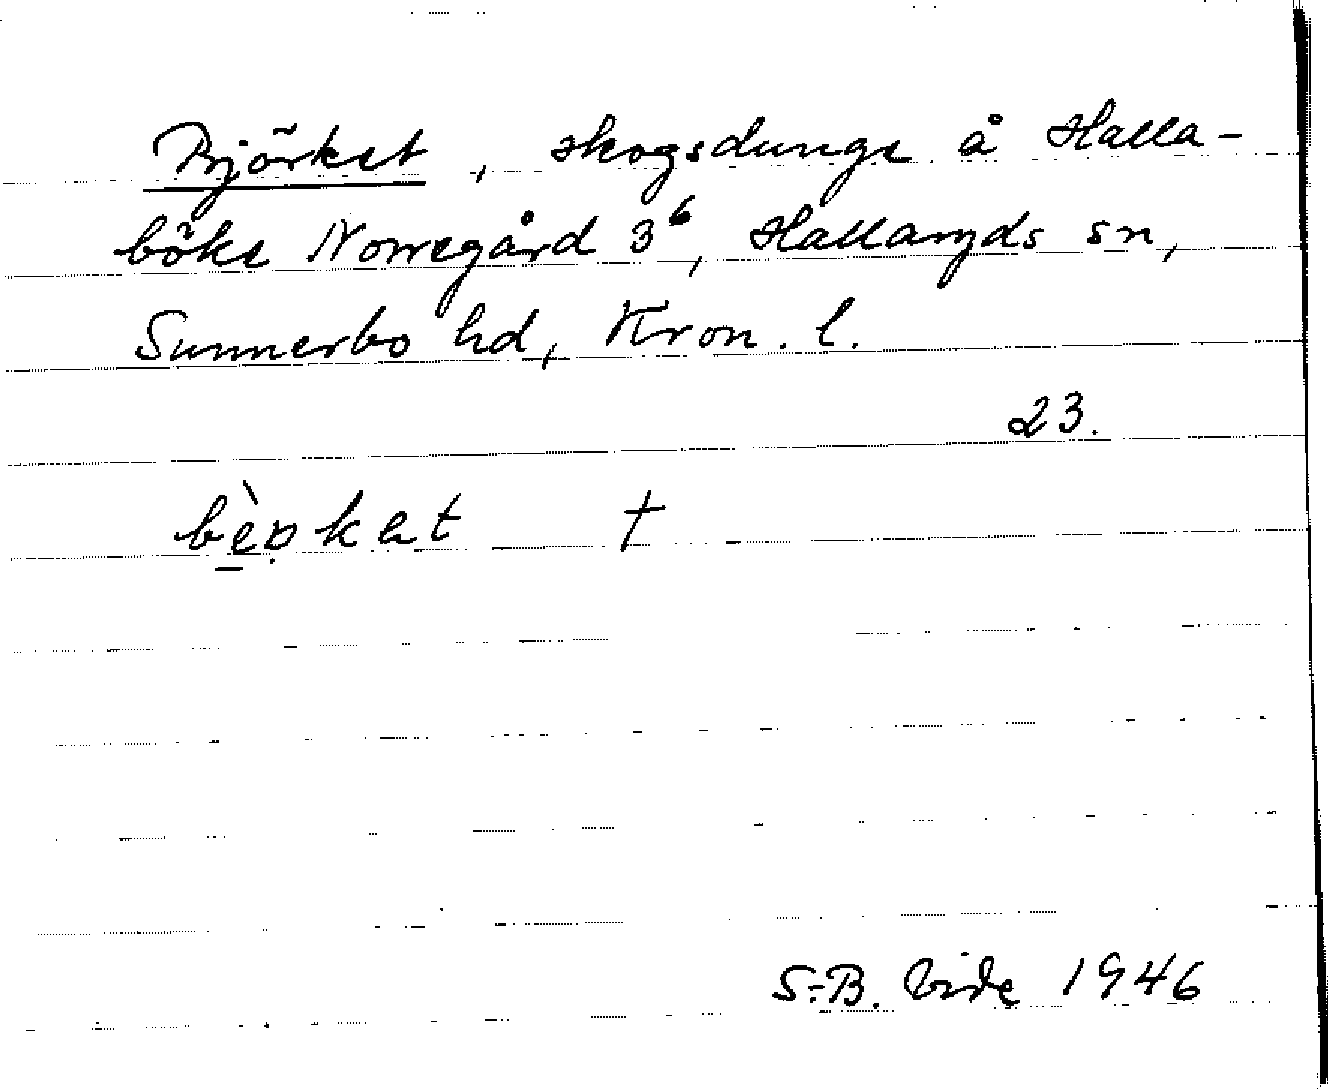 Björket, skogsdunge å Halla-
böke Norregård 3⁶, Hallaryds sn,
Sunnerbo hd, Kron. l.
23.
†
S.-B. Vide 1946